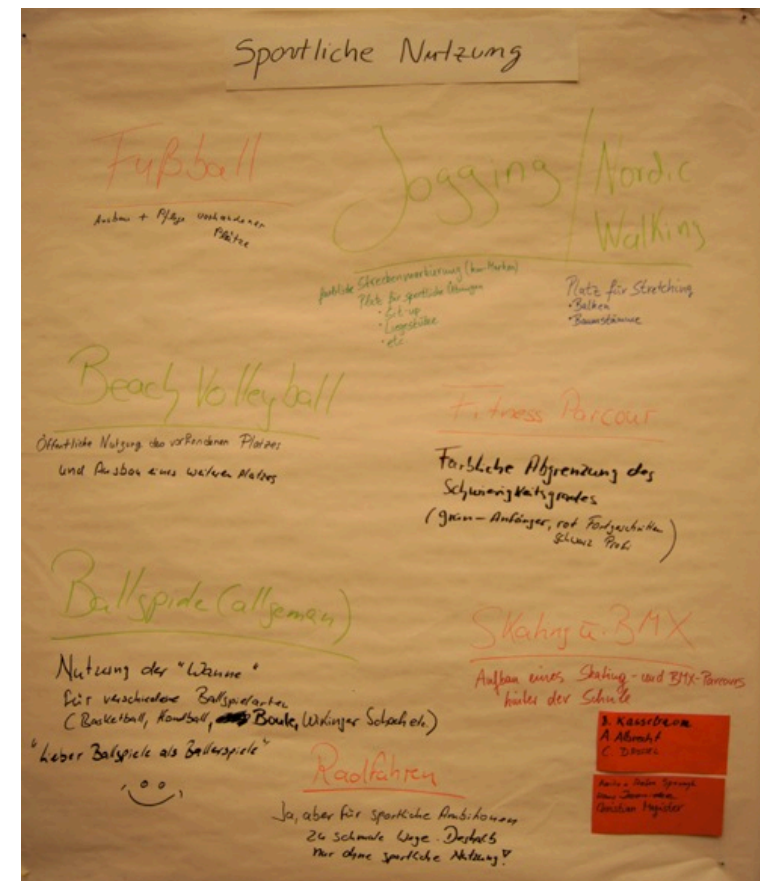 Sportliche Nutzung
Fußball
Ausbau + Pflege vorhandener
Plätze
Jogging / Nordic
Walking
farbliche Streckenmarkierung (km-Marken)
Platz für sportliche Übungen
• Sit-up
• Liegestütze
• etc
Platz für Stretching
• Balken
• Baumstämme
Beach Volleyball
Öffentliche Nutzung des vorhandenen Platzes
und Ausbau eines weiteren Platzes
Fitness Parcour
Farbliche Abgrenzung des
Schwierigkeitsgrades
(grün – Anfänger, rot Fortgeschritten
schwarz Profi)
Ballspiele (allgemein)
Nutzung der "Wanne"
für verschiedene Ballspielarten
(Basketball, Handball, Boule, Wikinger Schach etc.)
"Lieber Ballspiele als Ballerspiele"
Skating u. BMX
Aufbau eines Skating- und BMX-Parcours
hinter der Schule
Radfahren
Ja, aber für sportliche Ambitionen
zu schmale Wege. Deshalb
nur ohne sportliche Nutzung!
A. Albrecht
Christian